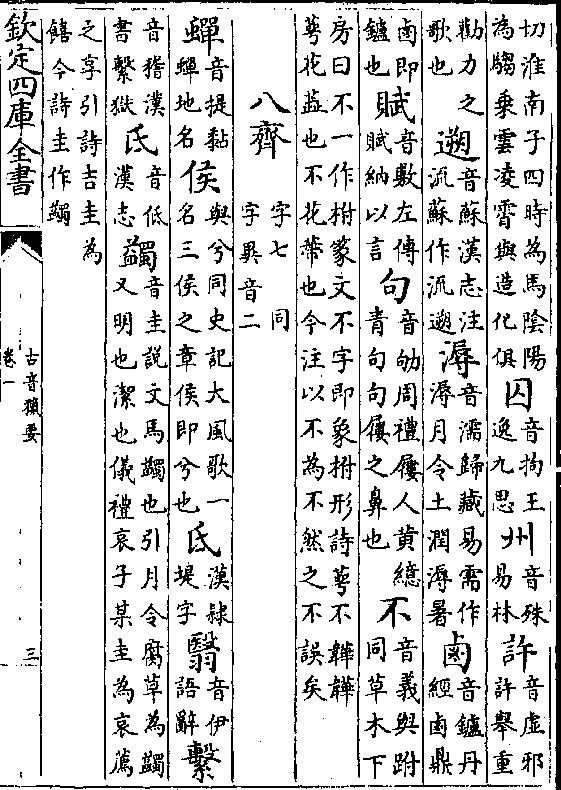 切淮南子四時為馬陰陽為騶乘雲凌霄與造化俱囚音拘王逸九思州音殊易林許音虛邪許舉重
勸力之歌也遡音蘇漢志注流蘇作流遡溽音濡歸藏易需作溽月令土潤溽暑鹵音鑪丹經鹵鼎
鹵即鑪也賦音敷左傳賦納以言句音劬周禮屨人黃繶青句句屨之鼻也不音義與跗同草木下
房曰不一作柎篆文不字即象柎形詩萼不韡韡萼花蕋也不花蔕也今注以不為不然之不誤矣
八齊字七同字異音二
蟬音提黏蟬地名侯與兮同史記大風歌一名三侯之章侯即兮也氏漢隷堤字翳音伊語辭繫
音稽漢書繫獄氐音低漢志蠲音圭說文馬蠲也引月令腐草為蠲又明也潔也儀禮哀子某圭為哀薦
之享引詩吉圭為饎今詩圭作蠲
欽定四庫全書
古音獵要
卷一
三